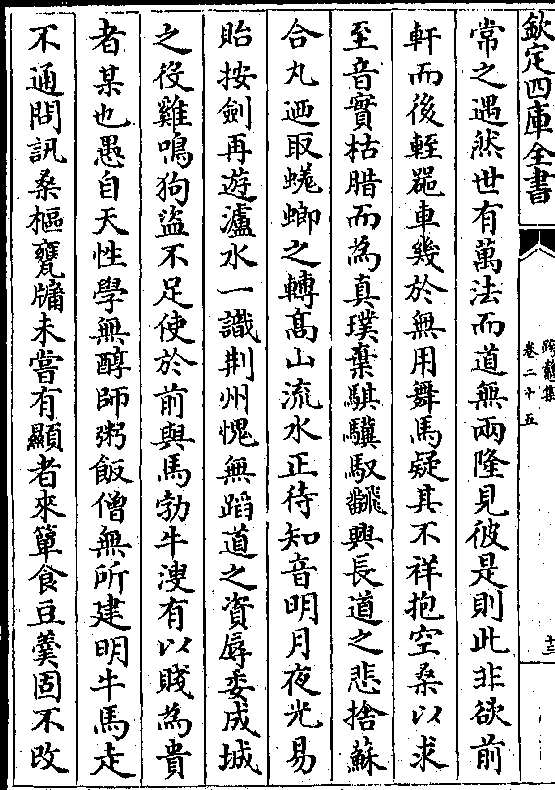 欽定四庫全書
卷二十五
常之遇然世有萬法而道無兩隆見彼是則此非欲前
軒而後輊噐車幾於無用舞馬疑其不祥抱空桑以求
至音實枯腊而為真璞棄騏驥馭𦐂興長道之悲捨蘇
合丸迺取蜣蜋之轉髙山流水正待知音明月夜光易
貽按劍再遊瀘水一識荆州愧無蹈道之資辱委成城
之役雞鳴狗盜不足使於前與馬勃牛溲有以賤為貴
者某也愚自天性學無醇師粥飯僧無所建明牛馬走
不通問訊桑樞甕牖未嘗有顯者來簞食豆羹固不改